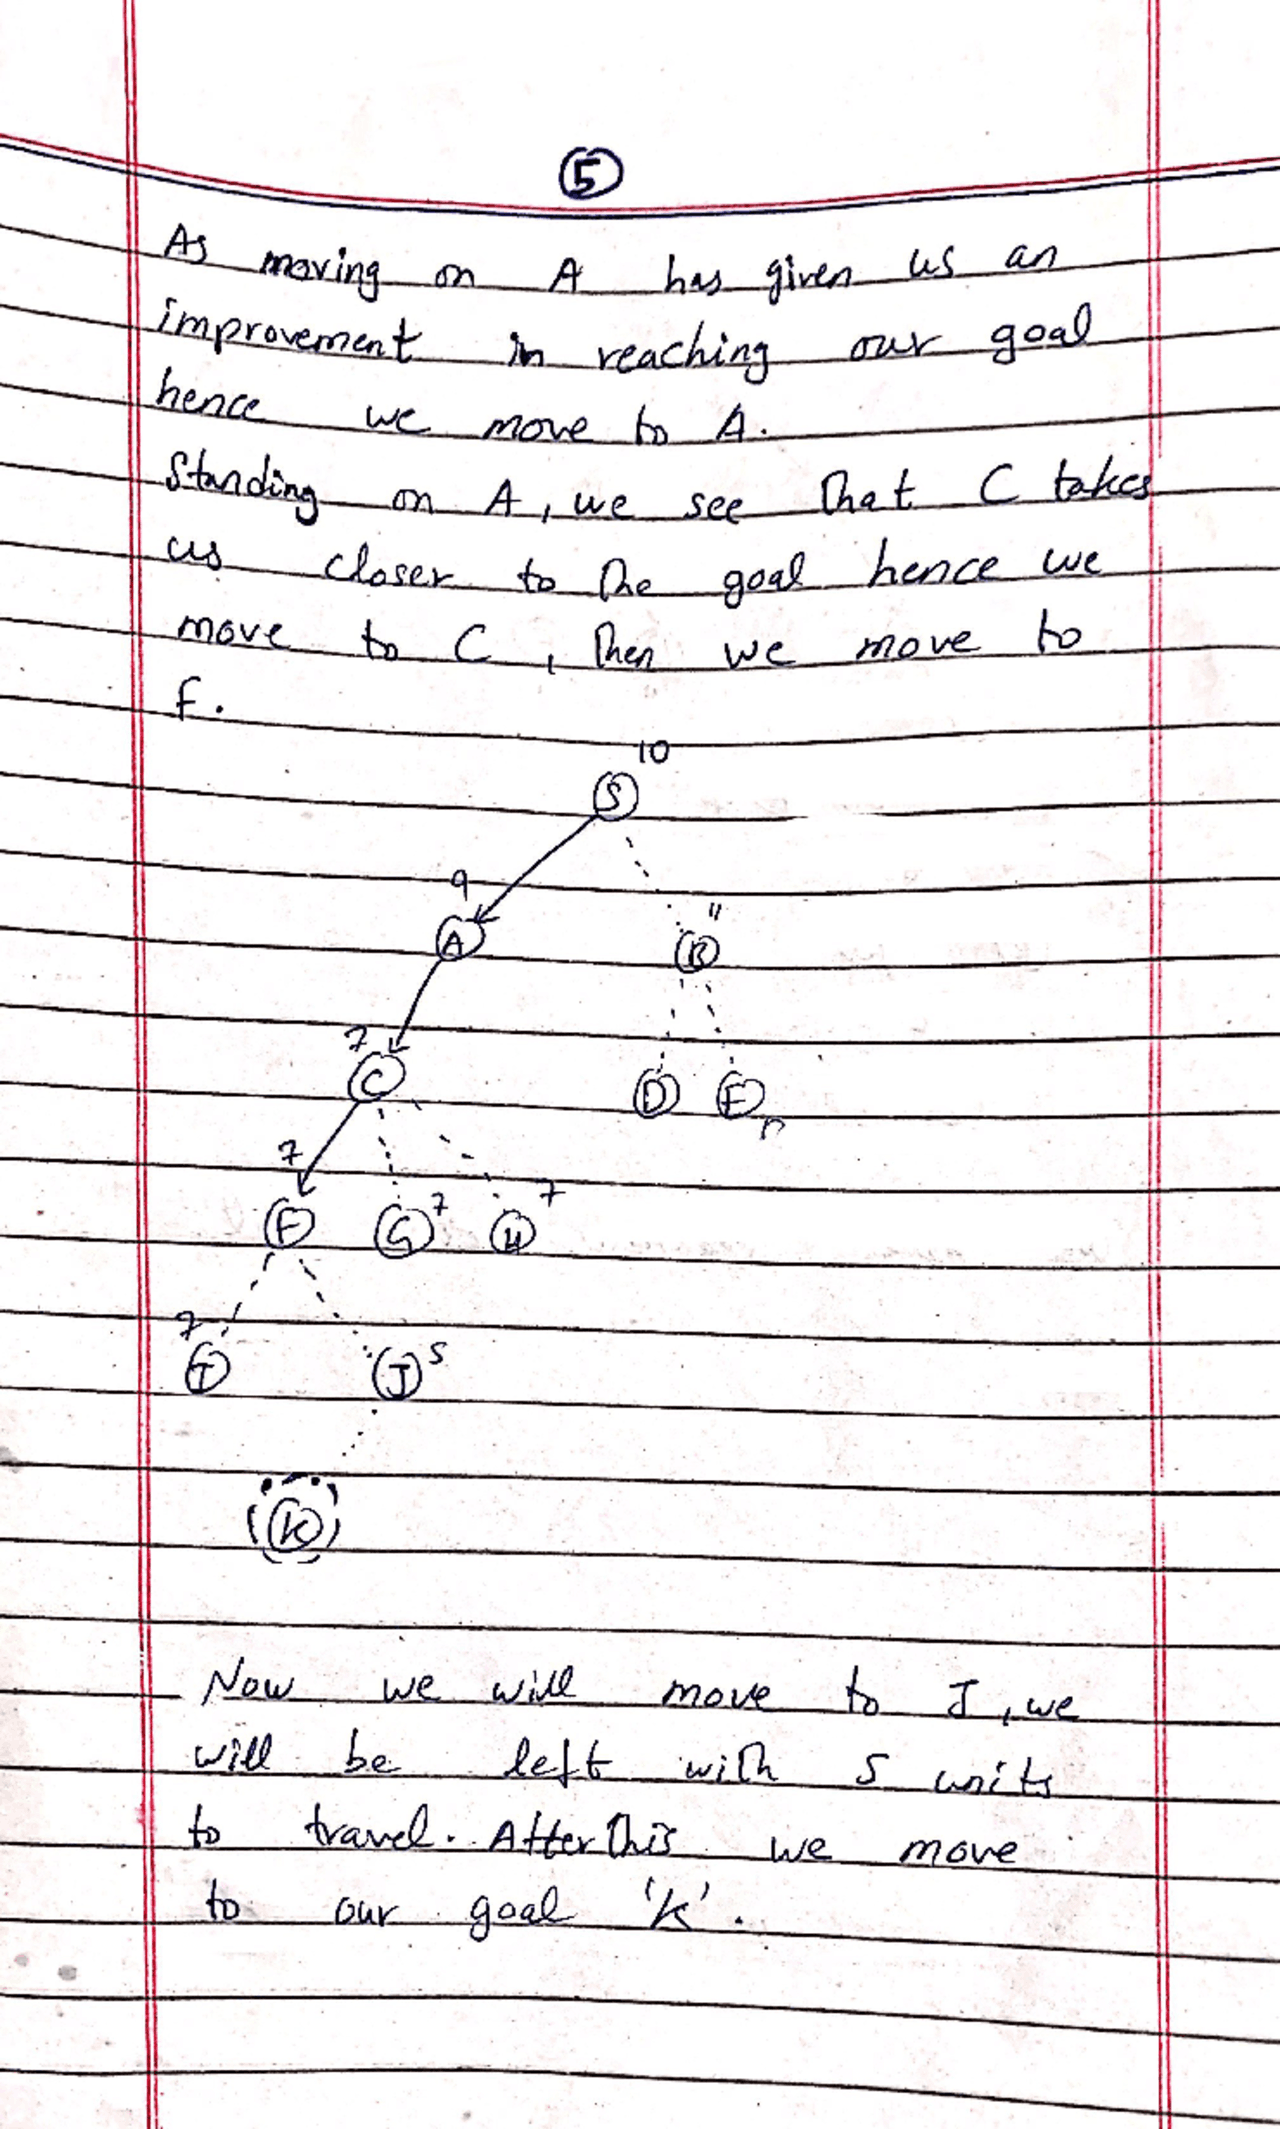 5
As moving on A has given us an
improvement in reaching our goal
hence we move to A.
Standing on A, we see that C takes
us closer to the goal hence we
move to C, then we move to
F.
10
S
9
A
11
B
7
C
D E
7
F G 7 H 7
7
I J 5
K
Now we will move to J, we
will be left with 5 units
to travel. After this we move
to our goal 'K'.